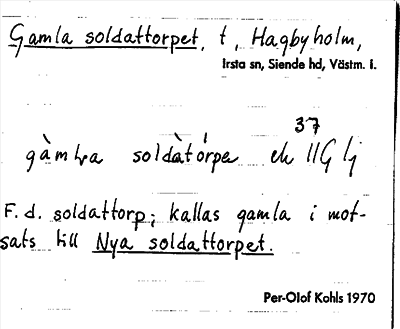 Gamla soldattorpet, t, Hagbyholm,
Irsta sn, Siende hd, Västm. l.
37
gàmla soldàtórpe ek llG lj
F. d. soldattorp; kallas gamla i mot-
sats till Nya soldattorpet.
Per-Olof Kohls 1970